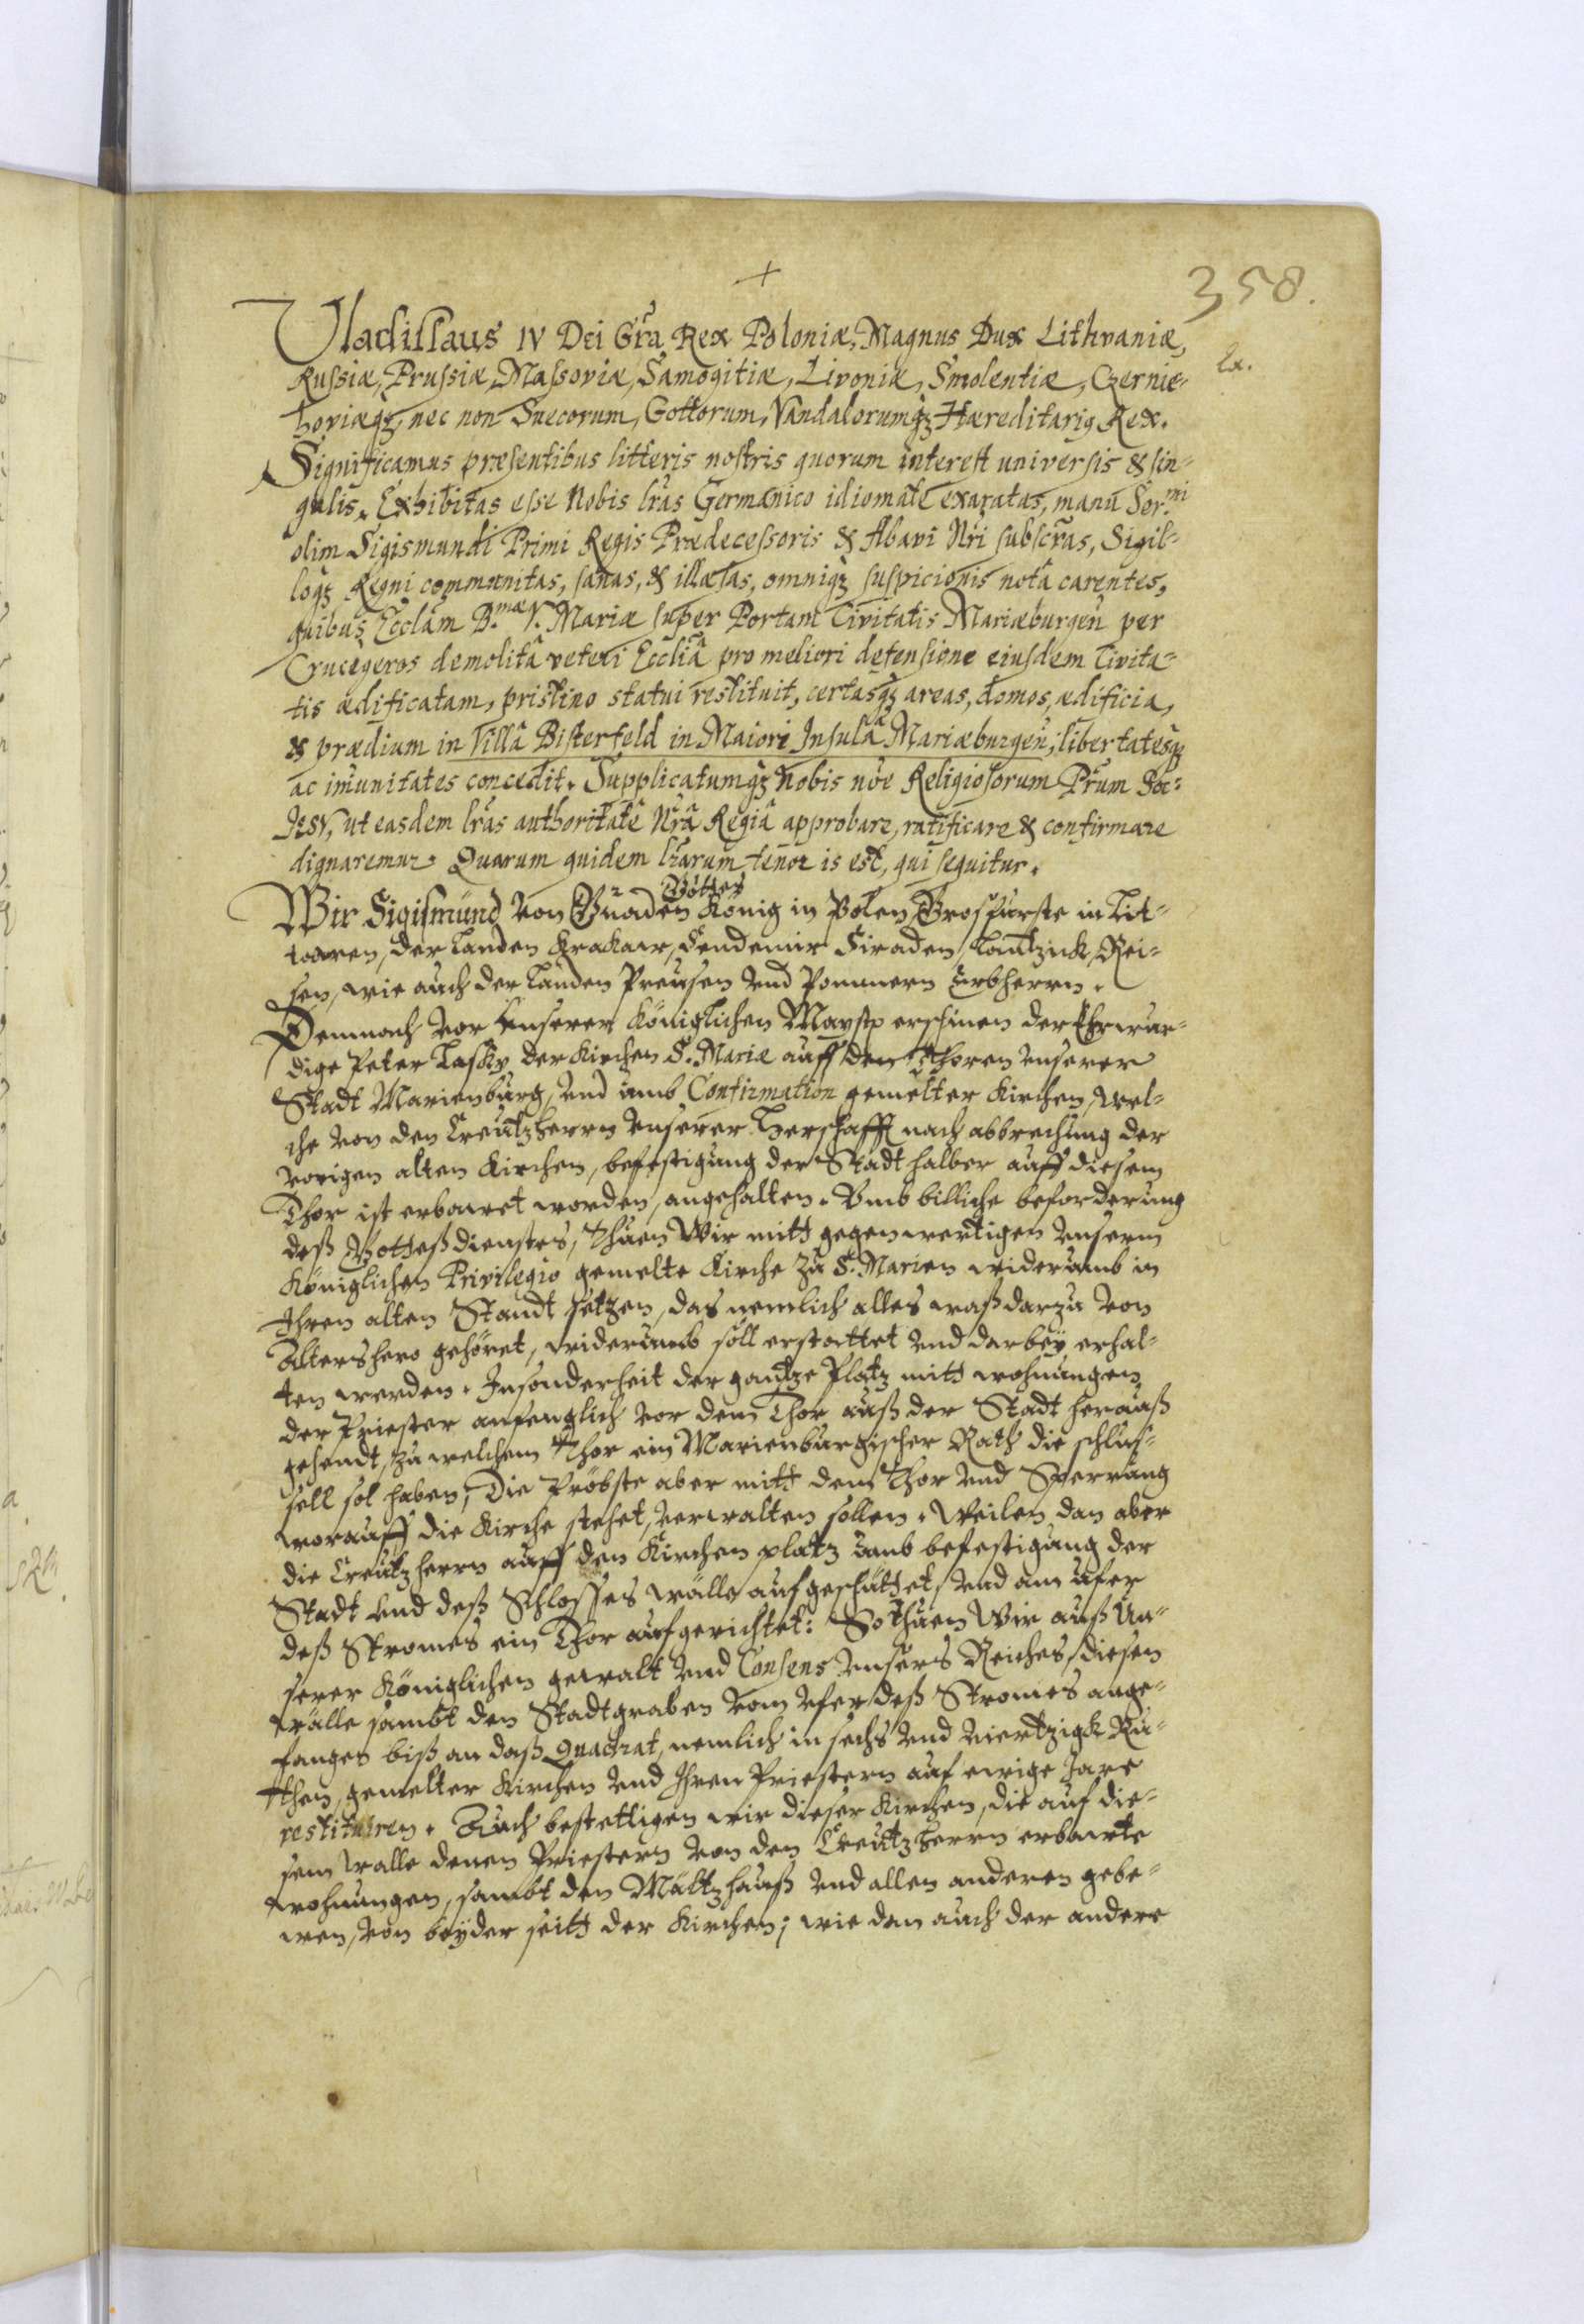 +
358.
Uladislaus IV Dei Gra Rex Poloniæ, Magnus Dux Lithvaniæ,
Russiæ, Prussiæ, Massoviæ, Samogitiæ, Livoniæ, Smolentiæ, Czernie-
hoviæqꝫ, nec non Suecorum, Gottorum, Vandalorumqꝫ Hæreditariꝫ Rex.
Significamus præsentibus litteris nostris quorum interest universis & sin-
gulis. Exhibitas esse Nobis lras Germanico idiomate exaratas, manu Ser.mi
olim Sigismundi Primi Regis Prædecessoris & Abavi Nri subscras, Sigil-
loqꝫ Regni communitas, sanas, & illæsas, omniqꝫ suspicionis notâ carentes,
quibus Ecclam B.mæ V. Mariæ super Portam Civitatis Mariæburgen per
Crucegeros demolitâ veteri Eccliâ pro meliori defensione eiusdem Civita-
tis ædificatam, pristino statui restituit, certasqꝫ areas, domos, ædificia,
& prædium in Villâ Bisterfeld in Maiori Insulâ Mariæburgen; libertatesqꝫ
ac imunitates concedit. Supplicatumqꝫ Nobis nöe Religiosorum Prum Soc:
IESV, ut easdem lras authoritate Nrâ Regiâ approbare, ratificare & confirmare
dignaremur. Quarum quidem lrarum tenor is est, qui sequitur.
Wir Sigismund von Gnaden Gottes König in Polen, Grosfürste in Lit-
tawen, der Landen Krakaw, Sendemir Siraden, Lantzick, Rei-
sen, wie auch der Landen Preusen und Pommern Erbherrn.
Demnach vor Unserer Königlichen Maystt erschinen der Ehrwur-
dige Peter Lasky der Kirchen S. Mariæ auff dem Thoren unserer
Stadt Marienburg, und umb Confirmation gemelter Kirchen, wel-
che von den Creutzherrn unserer Herschafft nach abbrechung der
vorigen alten Kirchen, befestigung der Stadt halber auff diesem
Thor ist erbawet worden, angehalten. Umb billiche beforderung
deß Gotteßdienstes, thuen Wir mitt gegenwertigen unserm
Königlichen Privilegio gemelte Kirche zu S. Marien widerumb in
Ihren alten Standt setzen, das nemlich alles waß darzu von
Altershero gehöret, widerumb soll erstattet und darbey erhal-
ten werden. Insonderheit der gantze Platz mitt wohnungen
der Priester anfenglich vor dem Thor auß der Stadt herauß
gehendt, zu welchem Thor ein Marienburgischer Rath die schlus-
sell sol haben; Die Pröbste aber mitt dem Thor und Sperrung
worauff die Kirche stehet, verwalten sollen. Weilen dan aber
die Creutzherrn auff den Kirchen platz umb befestigung der
Stadt und deß Schlosses wälle aufgeschüttet, und am ufer
deß Stromes ein Thor aufgerichtet: So thuen Wir auß Un-
serer Königlichen gewalt und Consens unsers Reiches, diesen
wälle sambt den Stadtgraben vom ufer deß Stromes ange-
fangen biß an daß Quadrat, nemlich in sechs und viertzigk Ru-
then, gemelter Kirchen und Ihren Priestern auf ewige Jare
restituiren. Auch bestettigen wir dieser Kirchen, die auf die-
sem walle denen Priestern von den Creutzherrn erbawte
wohnungen, sambt den Maltzhauß und allen anderen gebe-
wen, von beyder seitt der Kirchen; wie den auch der andere